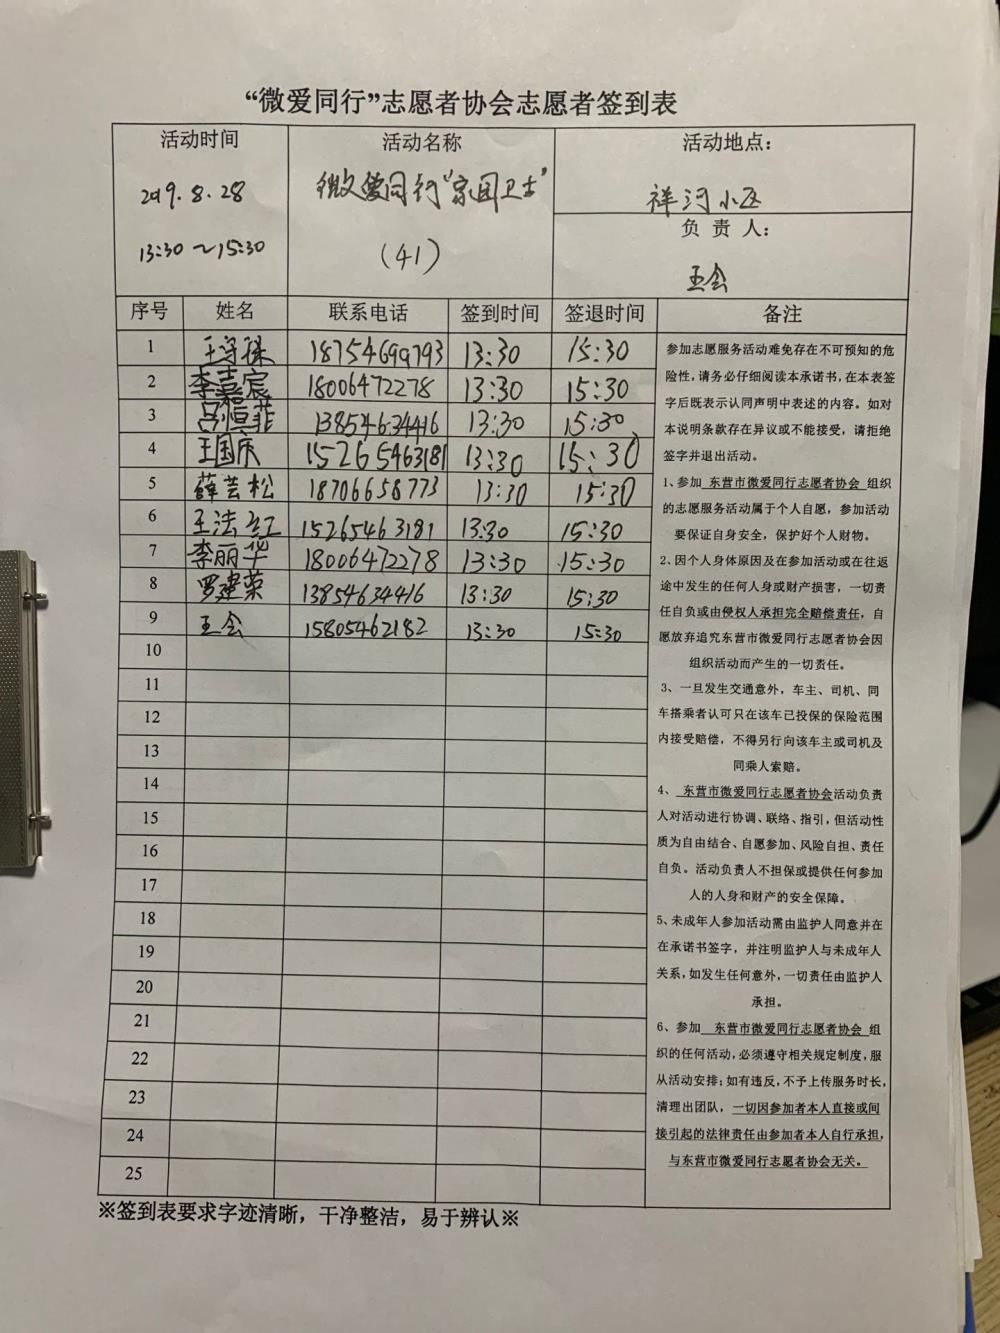 “微爱同行”志愿者协会志愿者签到表
活动时间
2019.8.28
13:30～15:30
活动名称
微爱同行“家园卫士”
（41）
活动地点：
祥河小区
负 责 人：
王会
序号 姓名 联系电话 签到时间 签退时间 备注
1 王守禄 18754699793 13:30 15:30
2 李嘉宸 18006472278 13:30 15:30
3 吕恒菲 13854634416 13:30 15:30
4 王国庆 15265463181 13:30 15:30
5 薛芸松 18706658773 13:30 15:30
6 王法红 15265463181 13:30 15:30
7 李丽华 18006472278 13:30 15:30
8 罗建荣 13854634416 13:30 15:30
9 王会 15805462182 13:30 15:30
10
11
12
13
14
15
16
17
18
19
20
21
22
23
24
25
参加志愿服务活动难免存在不可预知的危
险性，请务必仔细阅读本承诺书，在本表签
字后既表示认同声明中表述的内容。如对
本说明条款存在异议或不能接受，请拒绝
签字并退出活动。
1、参加 东营市微爱同行志愿者协会 组织
的志愿服务活动属于个人自愿，参加活动
要保证自身安全，保护好个人财物。
2、因个人身体原因及在参加活动或在往返
途中发生的任何人身或财产损害，一切责
任自负或由侵权人承担完全赔偿责任，自
愿放弃追究东营市微爱同行志愿者协会因
组织活动而产生的一切责任。
3、一旦发生交通意外，车主、司机、同
车搭乘者认可只在该车已投保的保险范围
内接受赔偿，不得另行向该车主或司机及
同乘人索赔。
4、 东营市微爱同行志愿者协会活动负责
人对活动进行协调、联络、指引，但活动性
质为自由结合、自愿参加、风险自担、责任
自负。活动负责人不担保或提供任何参加
人的人身和财产的安全保障。
5、未成年人参加活动需由监护人同意并在
在承诺书签字，并注明监护人与未成年人
关系，如发生任何意外，一切责任由监护人
承担。
6、参加 东营市微爱同行志愿者协会 组
织的任何活动，必须遵守相关规定制度，服
从活动安排；如有违反，不予上传服务时长，
清理出团队，一切因参加者本人直接或间
接引起的法律责任由参加者本人自行承担，
与东营市微爱同行志愿者协会无关。
※签到表要求字迹清晰，干净整洁，易于辨认※